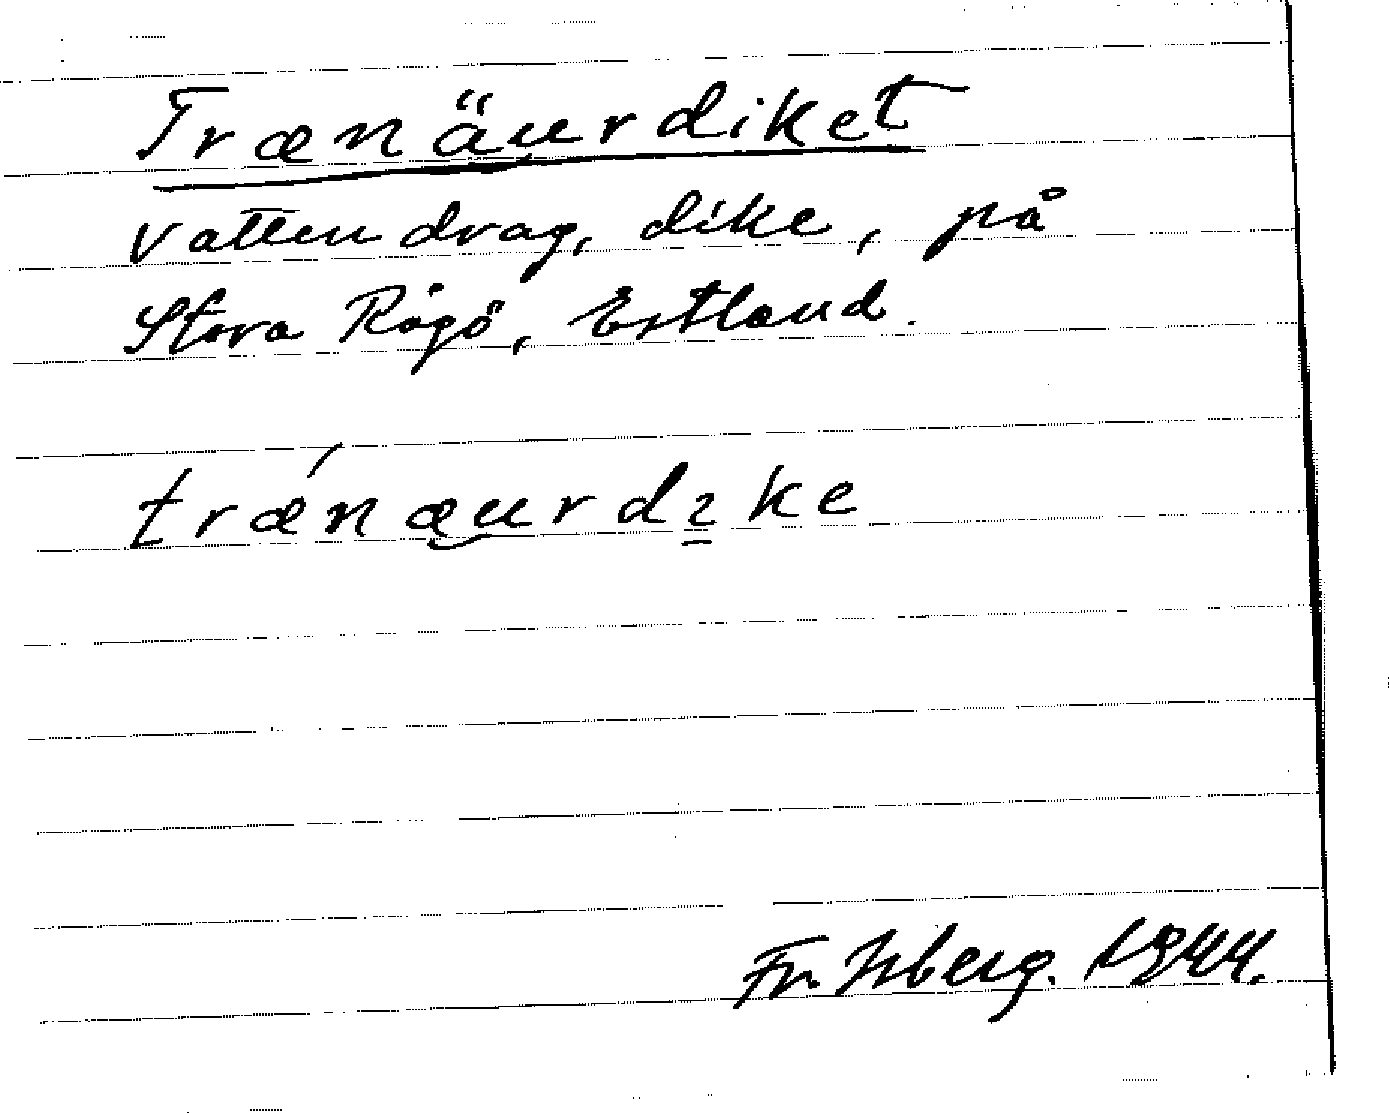 Trænäurdiket
vattendrag, dike, på
Stora Rågö, Estland.
trǽnæurdıke
Fr. Isberg. 1944.